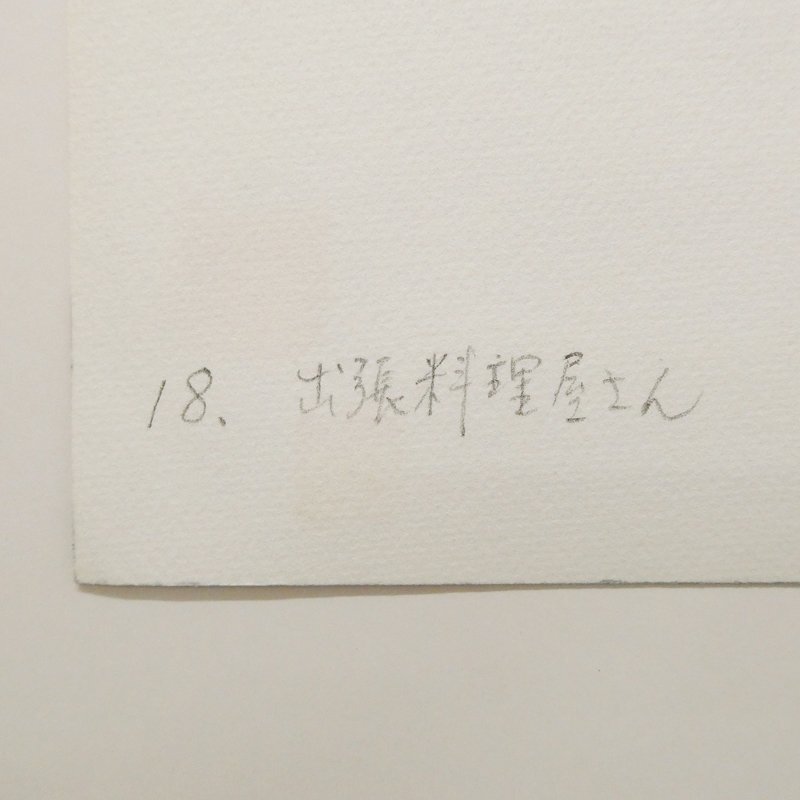 18. 出張料理屋さん